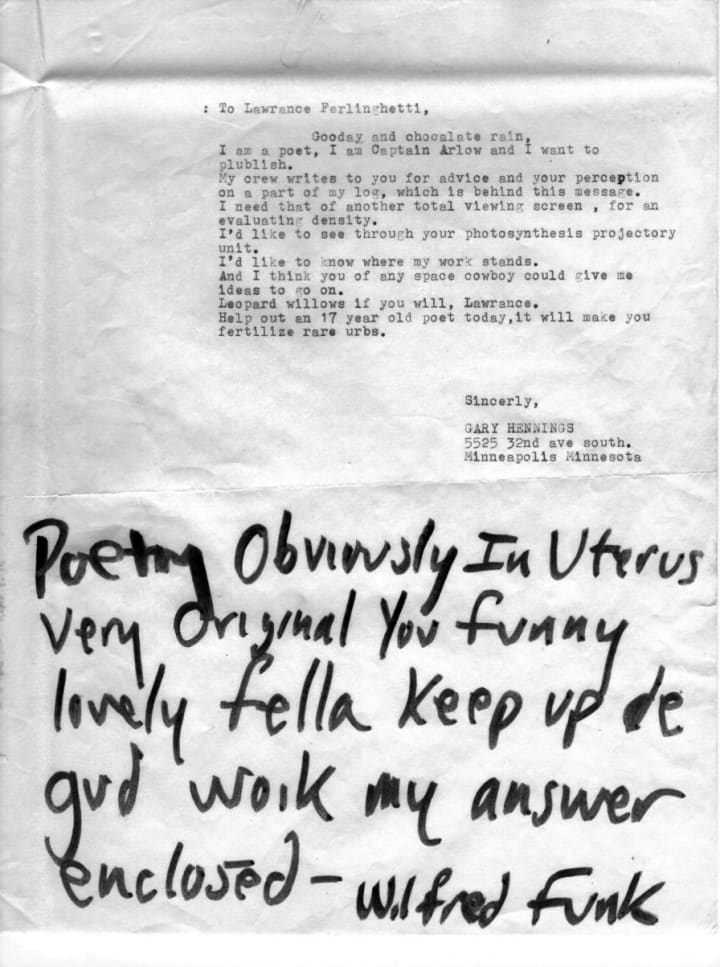 : To Lawrance Ferlinghetti,
Gooday and chocalate rain,
I am a poet, I am Captain Arlow and I want to
plublish.
My crew writes to you for advice and your perception
on a part of my log, which is behind this message.
I need that of another total viewing screen , for an
evaluating density.
I'd like to see through your photosynthesis projectory
unit.
I'd like to know where my work stands.
And I think you of any space cowboy could give me
ideas to go on.
Leopard willows if you will, Lawrance.
Help out an 17 year old poet today,it will make you
fertilize rare urbs.
Sincerly,
GARY HENNINGS
5525 32nd ave south.
Minneapolis Minnesota
Poetry Obviously In Uterus
Very Original You funny
lovely fella Keep up de
gud woik my answer
enclosed - Wilfred Funk